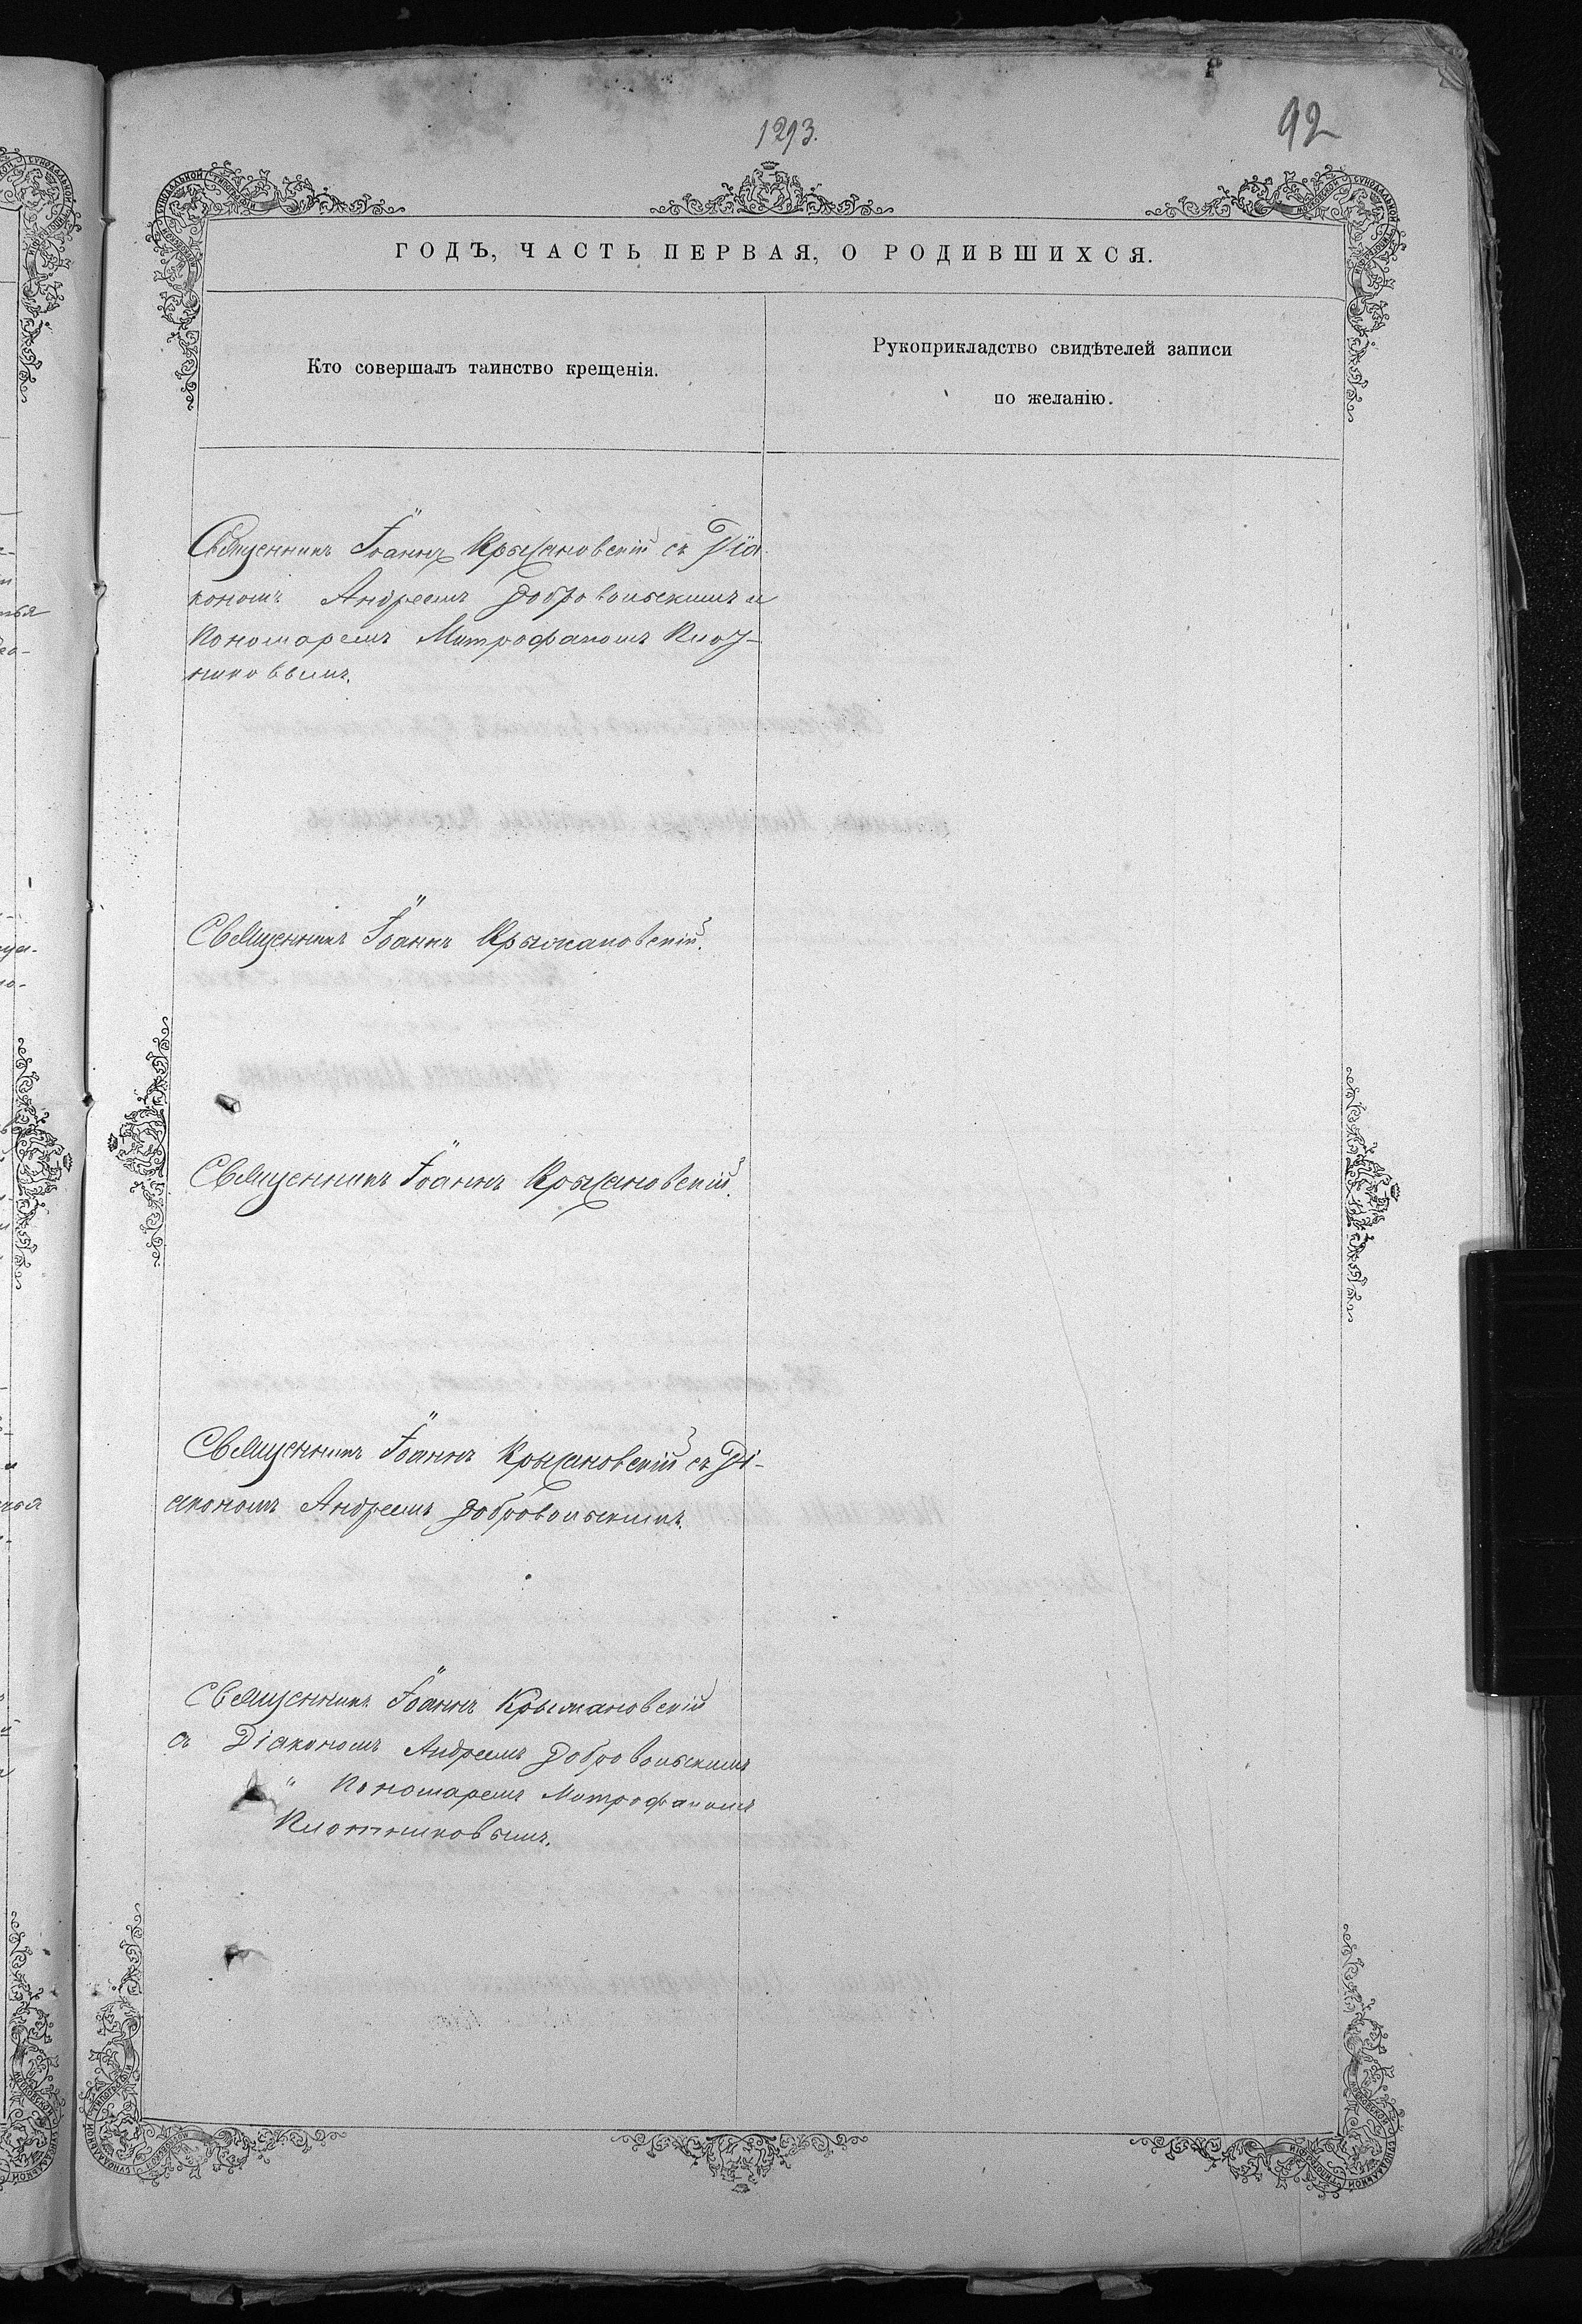 1293.
92
ГОДЪ, ЧАСТЬ ПЕРВАЯ, О РОДИВШИХСЯ.
Кто совершалъ таинство крещенія.
Рукоприкладство свидѣтелей записи
по желанію.
Священникъ Іоаннъ Крыжановскій съ Діа
кономъ Андреемъ Добровольскимъ и
Пономаремъ Митрофаномъ
никовымъ.
Священникъ Іоаннъ Крыжановскій.
Священникъ Іоаннъ Крыжановскій.
Священникъ Іоаннъ Крыжановскій съ Ді-
акономъ Андреемъ Добровольскимъ.
Священникъ Іоаннъ Крыжановскій
съ Діакономъ Андреемъ Добровольскимъ
" Пономаремъ Митрофаномъ
Плотниковымъ.